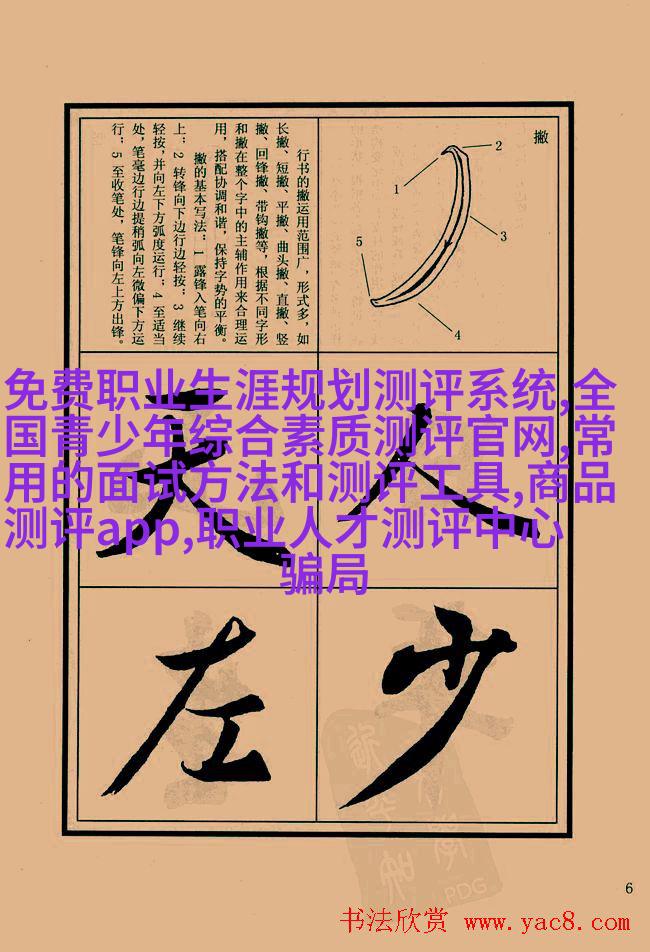 撇
1
2
3
4
5
行书的撇运用范围广，形式多，如
长撇、短撇、平撇、曲头撇、直撇、竖
撇、回锋撇、带钩撇等，根据不同字形
和撇在整个字中的主辅作用来合理运
用，搭配协调和谐，保持字势的平衡。
撇的基本写法：1 露锋入笔向右
上；2 转锋向下边行边轻按；3 继续
轻按，并向左下方弧度运行；4 至适当
处，笔毫边行边提稍弧向左微偏下方运
行；5 至收笔处，笔锋向左上方出锋。
免费职业生涯规划测评系统,全
国青少年综合素质测评官网,常
用的面试方法和测评工具,商品
测评app,职业人才测评中心
骗局
人
天
少
左
PDG
6
书法欣赏 www.yac8.com